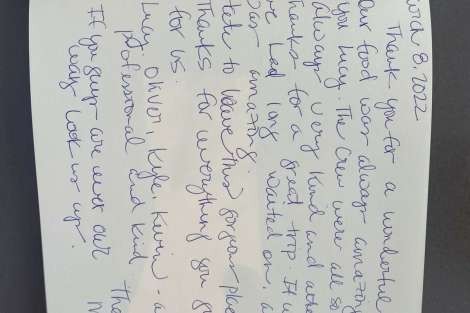 March 8, 2022
Thank you for a wonderful
Our food was always amazing
you Lucy. The crew were all so
always very kind and atte
Thanks for a great trip. It w
We had long waited on, a
was amazing.
Hate to leave this gorgeous place
Thanks for everything you gu
for us.
Lucy, Oliver, Kyle, Kevin - a
professional and kind
Tha
If you guys are ever our
way look us up.